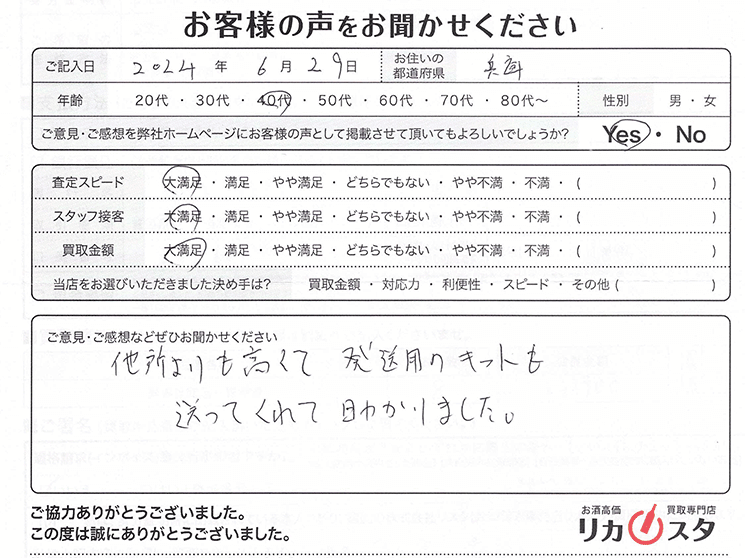 お客様の声をお聞かせください
ご記入日 2024 年 6 月 29 日 お住いの都道府県 兵庫
年齢 20代 ・ 30代 ・ 40代 ・ 50代 ・ 60代 ・ 70代 ・ 80代〜 性別 男 ・ 女
ご意見・ご感想を弊社ホームページにお客様の声として掲載させて頂いてもよろしいでしょうか? Yes ・ No
査定スピード 大満足 ・ 満足 ・ やや満足 ・ どちらでもない ・ やや不満 ・ 不満 ・ ( )
スタッフ接客 大満足 ・ 満足 ・ やや満足 ・ どちらでもない ・ やや不満 ・ 不満 ・ ( )
買取金額 大満足 ・ 満足 ・ やや満足 ・ どちらでもない ・ やや不満 ・ 不満 ・ ( )
当店をお選びいただきました決め手は? 買取金額 ・ 対応力 ・ 利便性 ・ スピード ・ その他 ( )
ご意見・ご感想などぜひお聞かせください
他所よりも高くて 発送用のキットも
送ってくれて助かりました。
ご協力ありがとうございました。
この度は誠にありがとうございました。
お酒高価 買取専門店
リカスタ